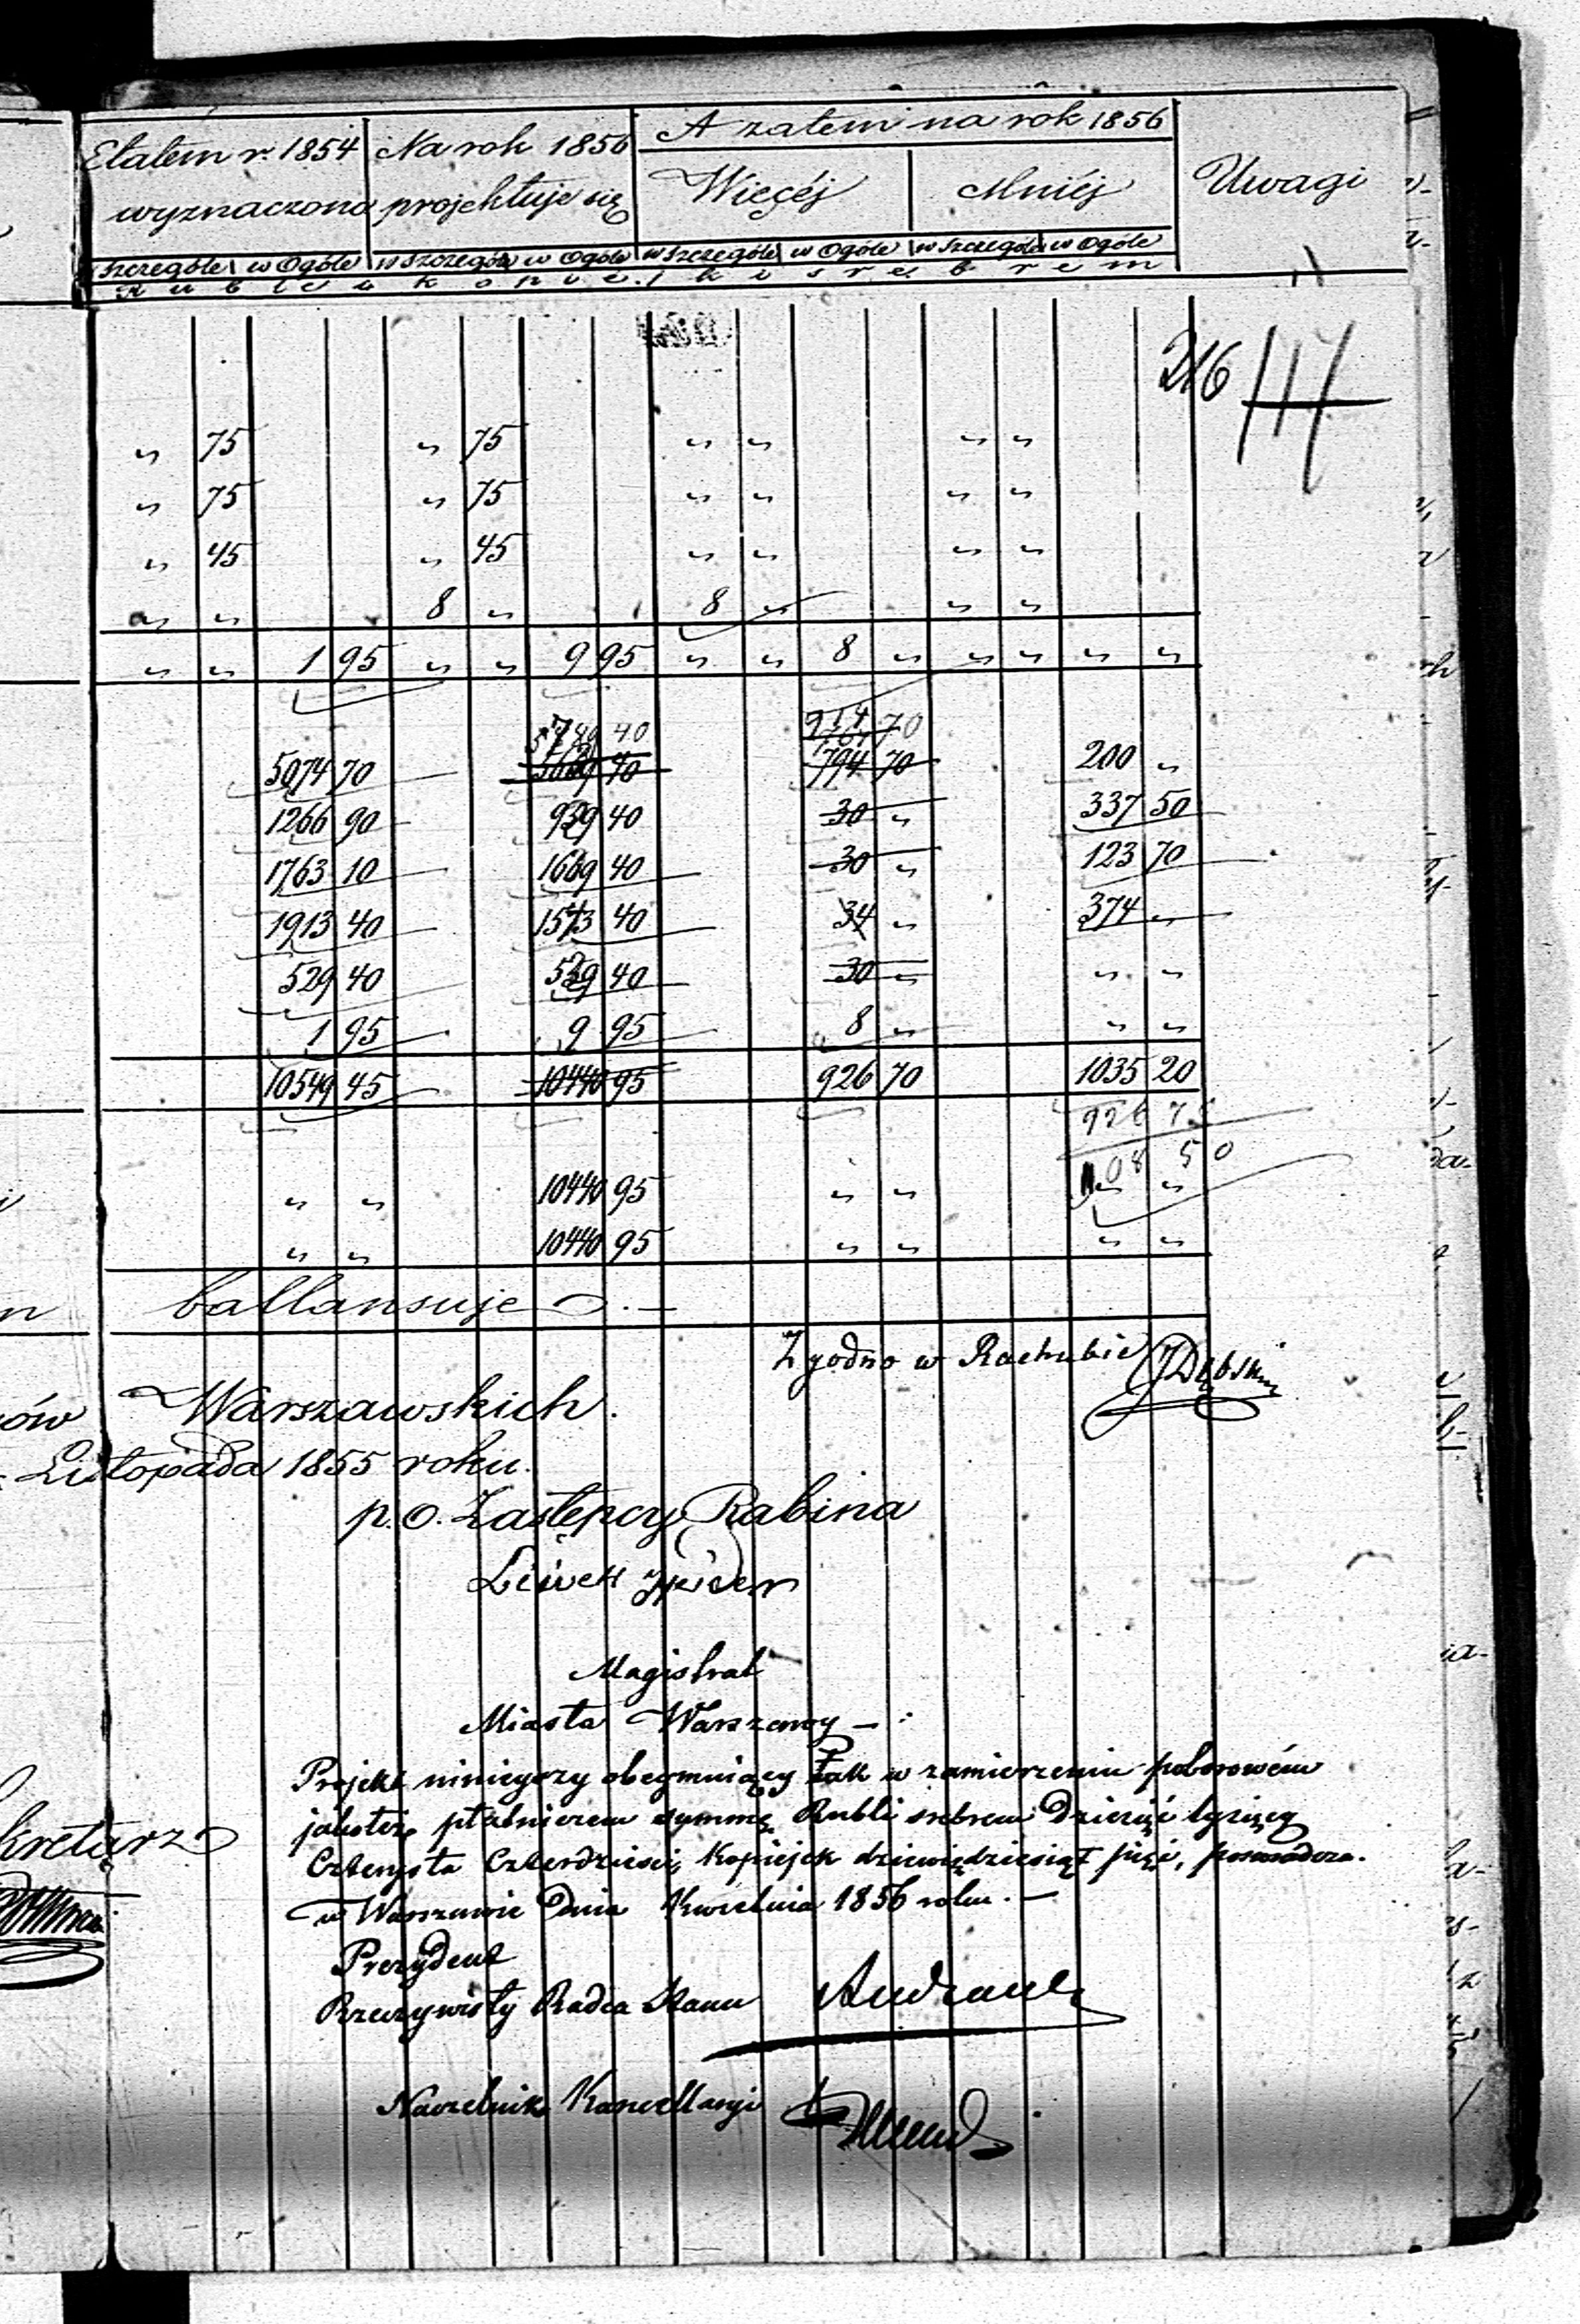 Etatem r. 1854 Na rok 1856 A zatem na rok 1856
wyznaczono projektuje się Więcéj Mniéj Uwagi
w szczególe w Ogóle w szczególe w Ogóle w szczególe w Ogóle w szczególe w Ogóle
Ruble i kopiejki srebrem
216 117
„ 75 „ 75 „ „ „ „
„ 75 „ 75 „ „ „ „
„ 45 „ 45 „ „ „ „
„ „ 8 „ 8 „ „ „
„ „ 1 95 „ „ 9 95 „ „ 8 „ „ „ „ „
40 70
5074 70 40 794 70 200 „
1266 90 929 40 30 „ 337 50
1763 10 1639 40 30 „ 123 70
1913 40 1573 40 34 „ 374 „
529 40 529 40 30 „ „ „
1 95 9 95 8 „ „ „
10549 45 10440 95 926 70 1035 20
926 7
108 50
„ „ 10440 95 „ „ „ „
„ „ 10440 95 „ „ „ „
ballansuje
Zgodno w Rachubie JDębski
Warszawskich.
Listopada 1855 roku.
p.o. Zastępcy Rabina
Magistrat
Miasta Warszawy
Projekt niniejszy obejmujący tak w zamierzeniu poborowém
jakoteż płatniczem summę Rubli srebrem Dziesięć tysięcy
Czterysta Czterdzieści, Kopiejek dziewięćdziesiąt pięć, poświadcza.
w Warszawie Dnia Kwietnia 1856 roku.
Prezydent
Rzeczywisty Radca Stanu Andrault
Naczelnik Kancellaryi